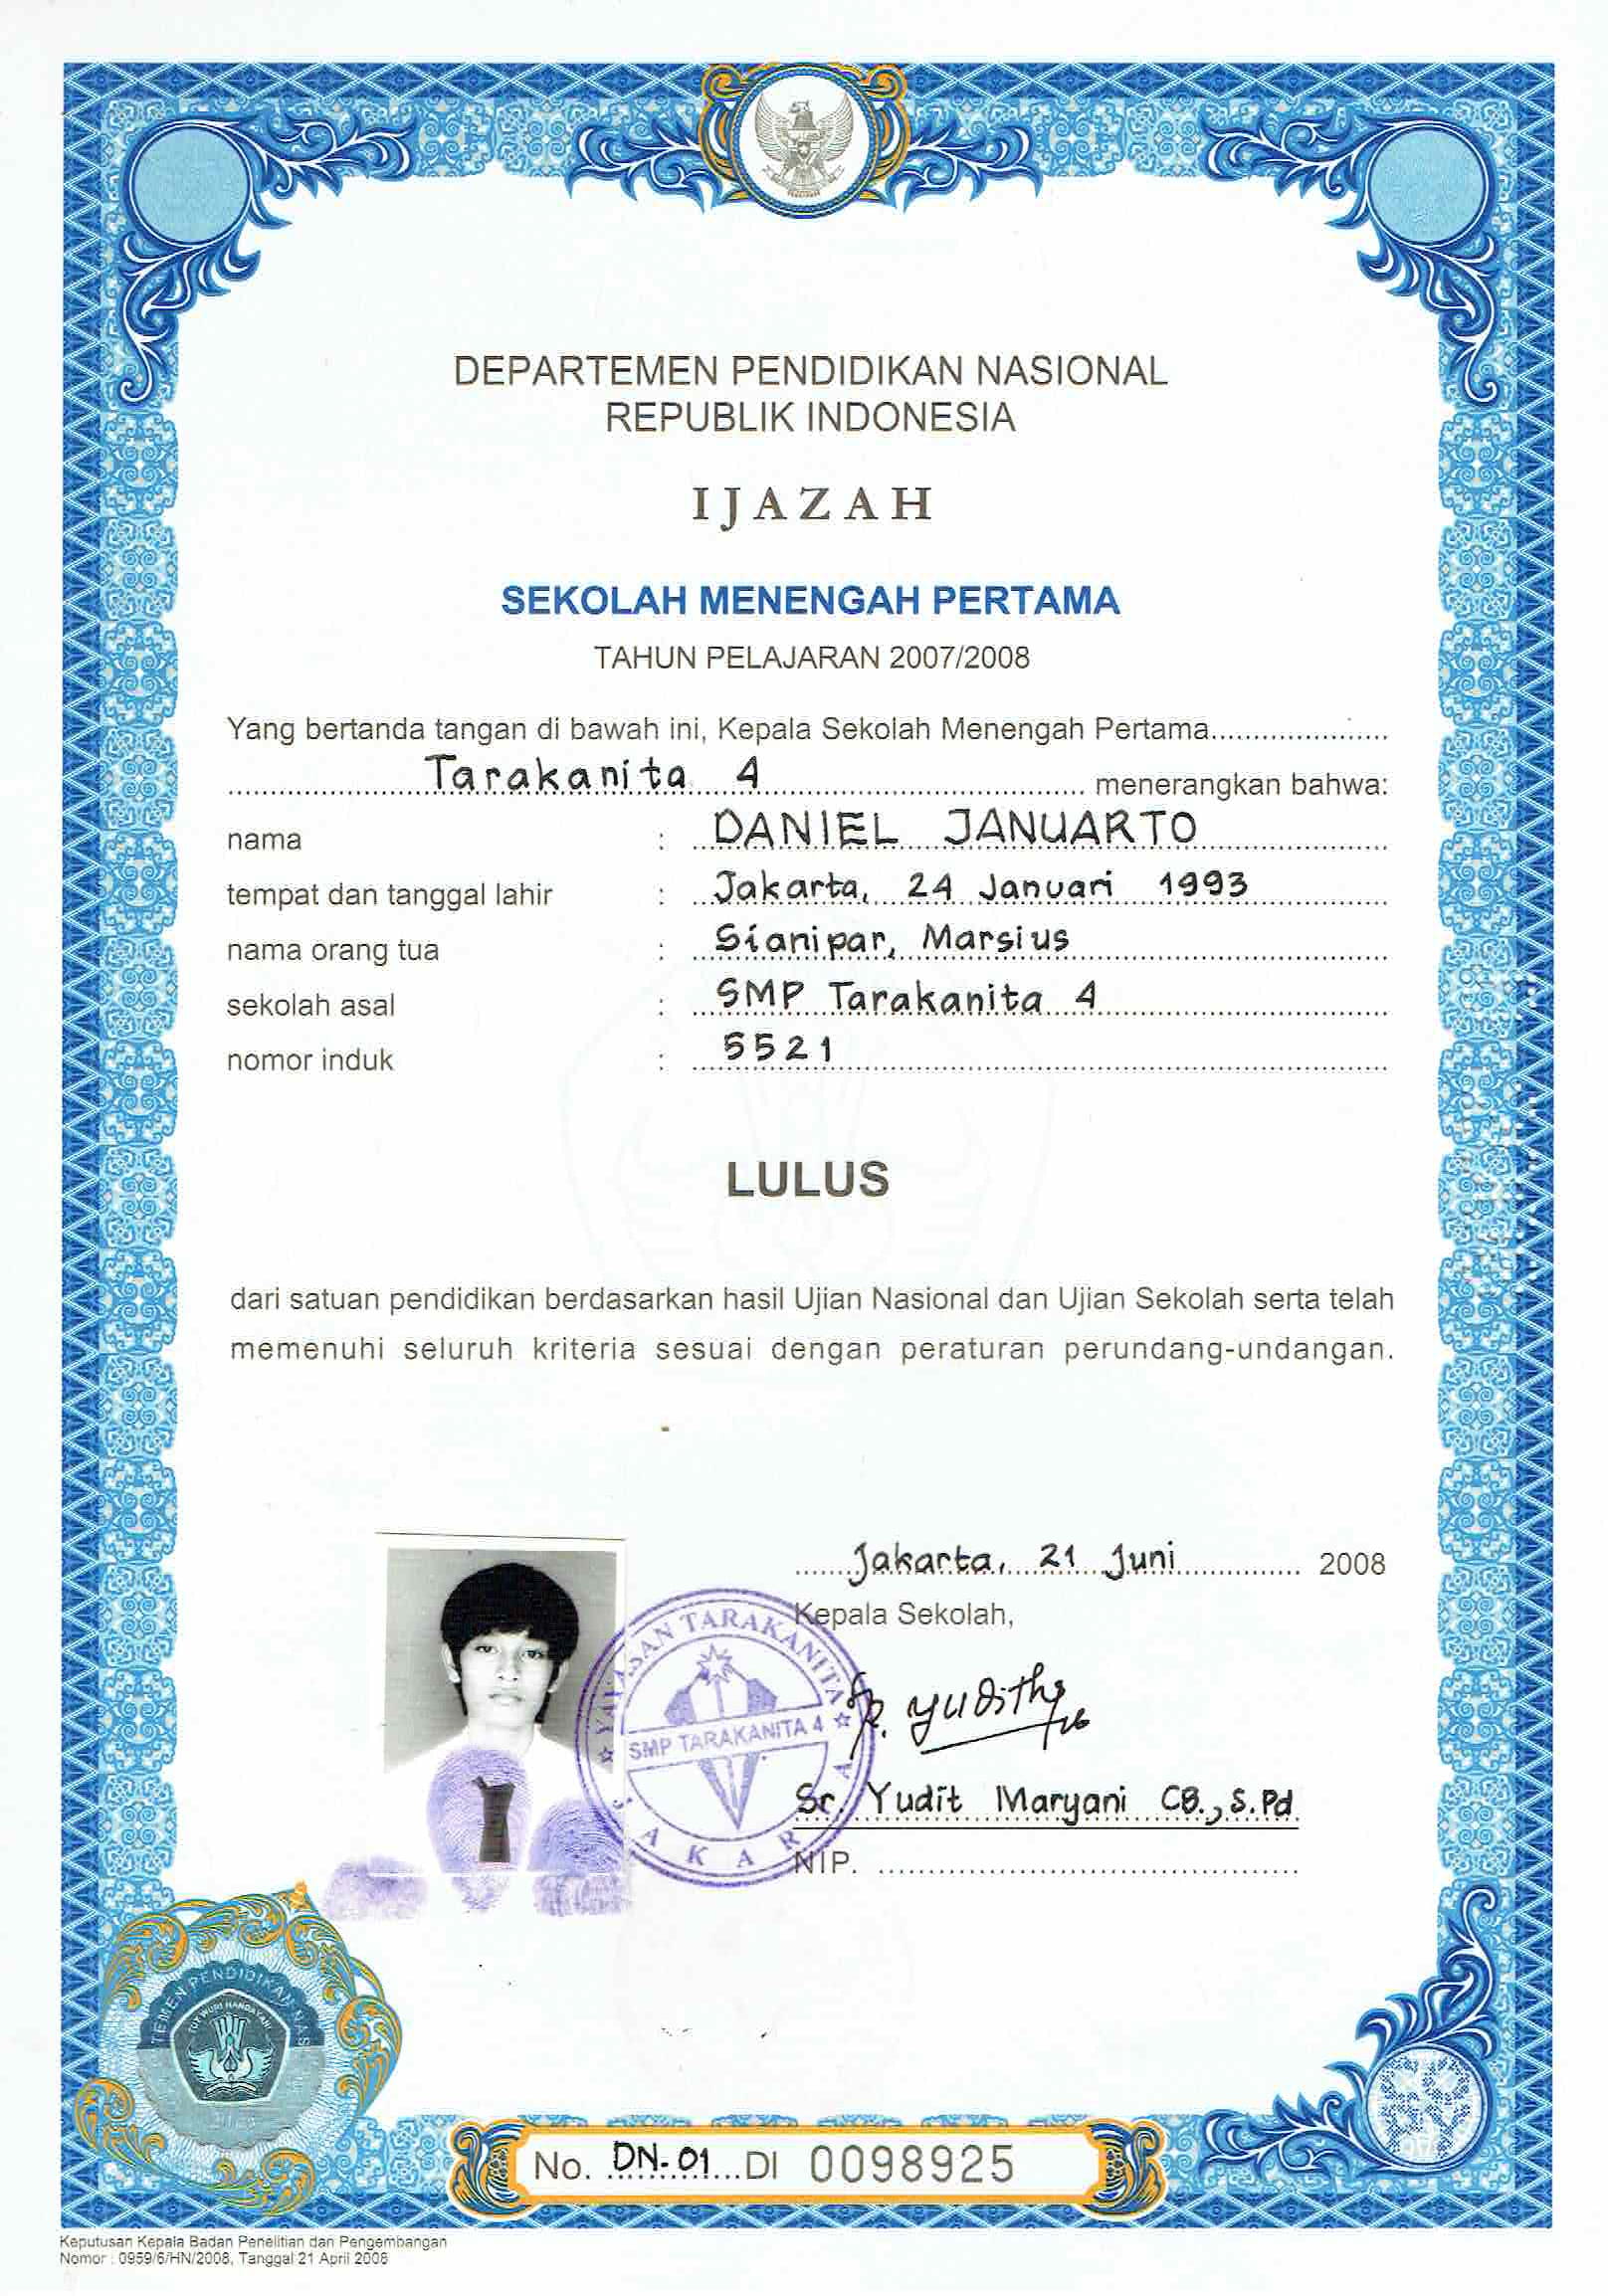 DEPARTEMEN PENDIDIKAN NASIONAL
REPUBLIK INDONESIA
IJAZAH
SEKOLAH MENENGAH PERTAMA
TAHUN PELAJARAN 2007/2008
Yang bertanda tangan di bawah ini, Kepala Sekolah Menengah Pertama......................
Tarakanita 4 menerangkan bahwa:
nama : DANIEL JANUARTO
tempat dan tanggal lahir : Jakarta, 24 Januari 1993
nama orang tua : Sianipar, Marsius
sekolah asal : SMP Tarakanita 4
nomor induk : 5521
LULUS
dari satuan pendidikan berdasarkan hasil Ujian Nasional dan Ujian Sekolah serta telah
memenuhi seluruh kriteria sesuai dengan peraturan perundang-undangan.
Jakarta, 21 Juni 2008
Kepala Sekolah,
YAYASAN TARAKANITA
SMP TARAKANITA 4
JAKARTA
Sr. Yudit Maryani CB., S.Pd
NIP. ........................................
PENDIDIKAN NAS
TUT WURI HANDAYANI
No. DN-01 DI 0098925
Keputusan Kepala Badan Penelitian dan Pengembangan
Nomor : 0959/6/HN/2008, Tanggal 21 April 2008